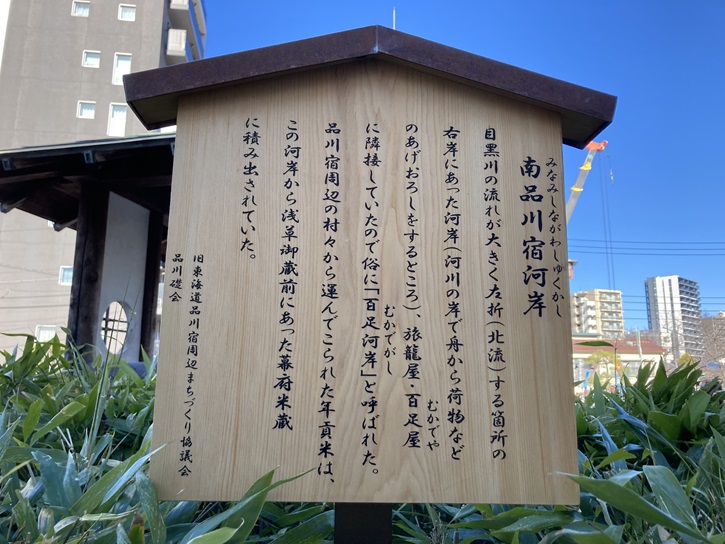 みなみしながわしゅくかし
南品川宿河岸
目黒川の流れが大きく左折(北流)する箇所の
右岸にあった河岸(河川の岸で舟から荷物など
のあげおろしをするところ)、旅籠屋・百足屋
むかでや
に隣接していたので俗に「百足河岸」と呼ばれた。
むかでがし
品川宿周辺の村々から運んでこられた年貢米は、
この河岸から浅草御蔵前にあった幕府米蔵
に積み出されていた。
旧東海道品川宿周辺まちづくり協議会
品川礎会